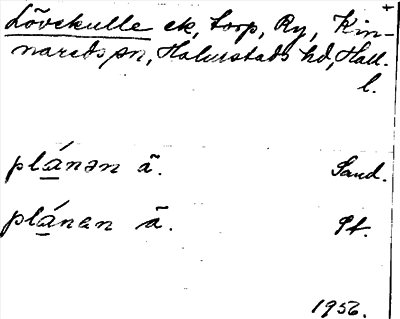 Lövekulle ek, torp, Ry, Kin-
nareds sn, Halmstads hd, Hall.
l.
plánən ã. Sand.
plánen ã. St.
1956.